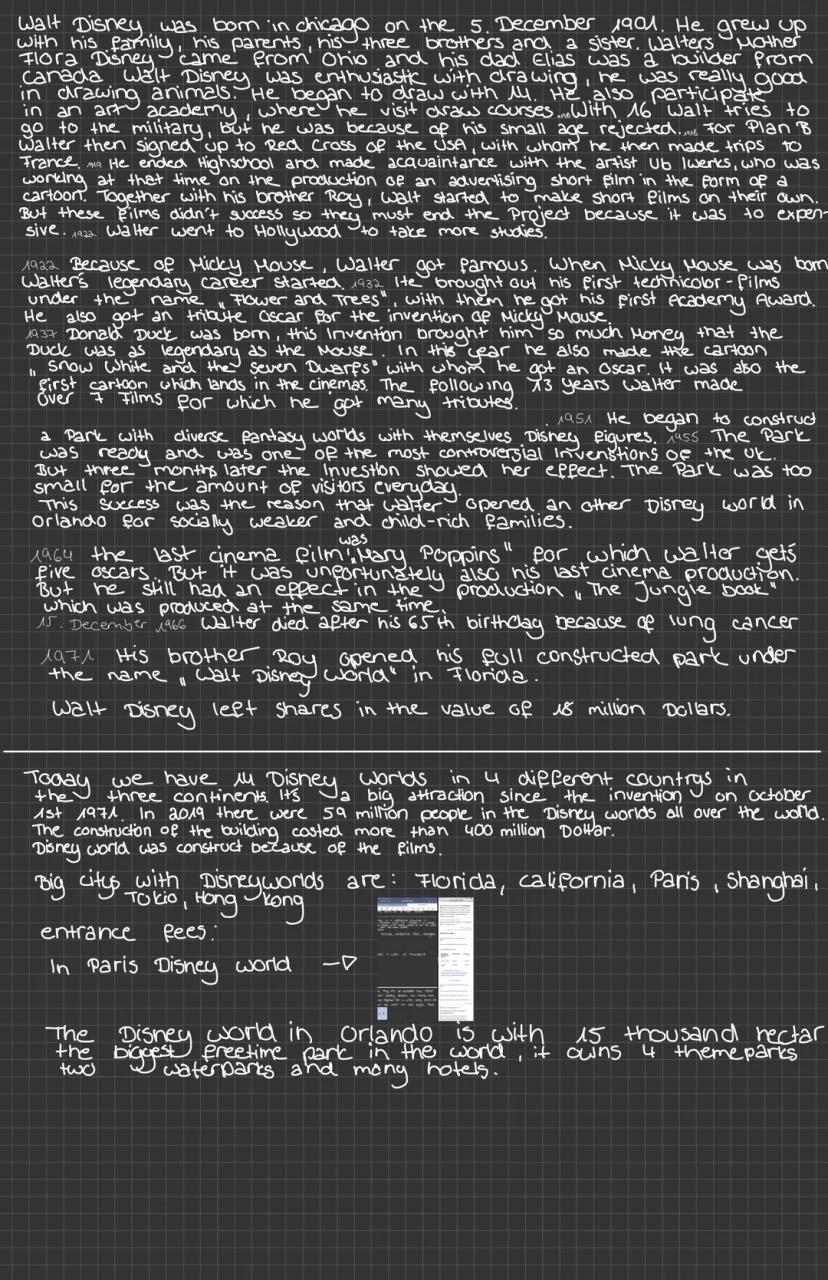 Walt Disney was born in chicago on the 5. December 1901. He grew up
with his family, his parents, his three brothers and a sister. Walters Mother
Flora Disney came from Ohio and his dad Elias was a builder from
Canada. Walt Disney was enthusiastic with drawing, he was really good
in drawing animals. He began to draw with 14. He also participate
in an art academy, where he visit draw courses. With 16 Walt tries to
go to the military, but he was because of his small age rejected. For Plan B
Walter then signed up to Red Cross of the USA, with whom he then made trips to
France. 1919 He ended Highschool and made acquaintance with the artist Ub Iwerks, who was
working at that time on the production of an advertising short film in the form of a
cartoon. Together with his brother Roy, Walt started to make short films on their own.
But these films didn't success so they must end the Project because it was to expen-
sive. 1922 Walter went to Hollywood to take more studies.
1922 Because of Micky Mouse, Walter got famous. When Micky Mouse was born
Walter's legendary career started. 1932 He brought out his first technicolor-films
under the name „Flower and Trees", with them he got his first Academy Award.
He also got an tribute Oscar for the invention of Micky Mouse.
1937 Donald Duck was born, this Invention brought him so much Money that the
Duck was as legendary as the Mouse. In this year he also made the cartoon
„Snow White and the seven Dwarfs" with whom he got an Oscar. It was also the
first cartoon which lands in the cinemas. The following 13 years Walter made
over 7 Films for which he got many tributes.
1951 He began to construct
a Park with diverse fantasy worlds with themselves Disney figures. 1955 The Park
was ready and was one of the most controversial Inventions of the UK.
But three months later the Investion showed her effect. The Park was too
small for the amount of visitors everyday.
This success was the reason that Walter opened an other Disney world in
Orlando for socially weaker and child-rich families.
was
1964 the last cinema film „Mary Poppins" for which Walter gets
five oscars. But it was unfortunately also his last cinema production.
But he still had an effect in the production „The Jungle book"
which was produced at the same time.
15. December 1966 Walter died after his 65th birthday because of lung cancer
1971 His brother Roy opened his full constructed park under
the name „Walt Disney World" in Florida.
Walt Disney left shares in the value of 18 million Dollars.
Today we have 14 Disney Worlds in 4 different countrys in
the three continents. It's a big attraction since the invention on October
1st 1971. In 2019 there were 59 million people in the Disney worlds all over the world.
The construction of the building costed more than 400 million Dollar.
Disney world was construct because of the films.
Big citys with Disneyworlds are: Florida, California, Paris, Shanghai,
Tokio, Hong Kong
entrance fees:
In Paris Disney world →
The Disney world in Orlando is with 15 thousand hectar
the biggest freetime park in the world, it owns 4 themeparks
two waterparks and many hotels.